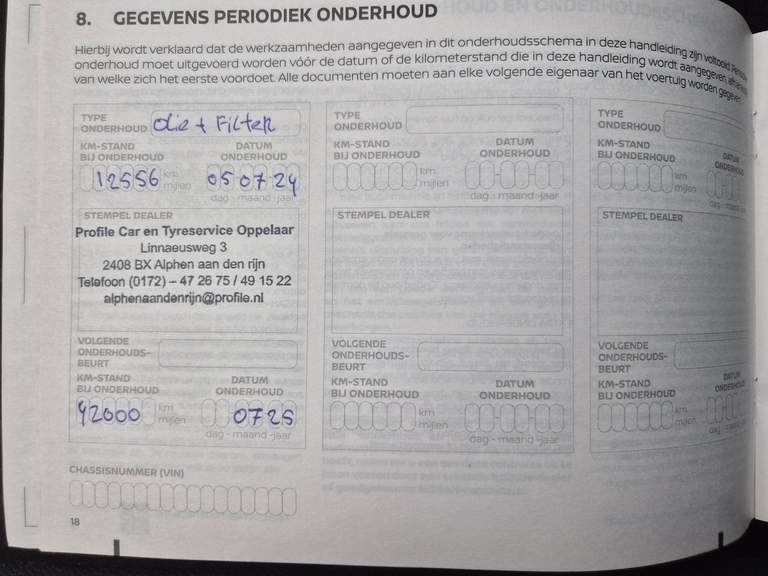 8. GEGEVENS PERIODIEK ONDERHOUD
Hierbij wordt verklaard dat de werkzaamheden aangegeven in dit onderhoudsschema in deze handleiding zijn voltooid.
onderhoud moet uitgevoerd worden vóór de datum of de kilometerstand die in deze handleiding wordt aangegeven,
van welke zich het eerste voordoet. Alle documenten moeten aan elke volgende eigenaar van het voertuig worden gegeven.
TYPE
ONDERHOUD Olie + Filter
KM-STAND
BIJ ONDERHOUD
DATUM
ONDERHOUD
12556 km
mijlen
05 07 24
dag - maand - jaar
STEMPEL DEALER
Profile Car en Tyreservice Oppelaar
Linnaeusweg 3
2408 BX Alphen aan den rijn
Telefoon (0172) – 47 26 75 / 49 15 22
alphenaandenrijn@profile.nl
VOLGENDE
ONDERHOUDS-
BEURT
KM-STAND
BIJ ONDERHOUD
DATUM
ONDERHOUD
42000 km
mijlen
07 25
dag - maand - jaar
CHASSISNUMMER (VIN)
18
TYPE
ONDERHOUD
KM-STAND
BIJ ONDERHOUD
DATUM
ONDERHOUD
km
mijlen
dag - maand - jaar
STEMPEL DEALER
VOLGENDE
ONDERHOUDS-
BEURT
KM-STAND
BIJ ONDERHOUD
DATUM
ONDERHOUD
km
mijlen
dag - maand - jaar
TYPE
ONDERHOUD
KM-STAND
BIJ ONDERHOUD
DATUM
ONDERHOUD
km
mijlen
dag
STEMPEL DEALER
VOLGENDE
ONDERHOUDS-
BEURT
KM-STAND
BIJ ONDERHOUD
DATUM
ONDERHOUD
km
mijlen
dag